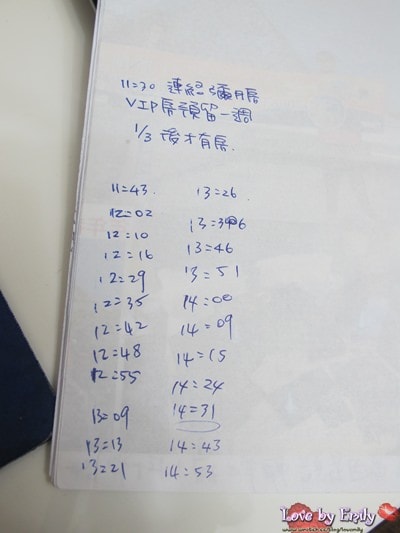 11:30 連絡彌月房
VIP房預留一週
1/3 後才有房.
11:43
12:02
12:10
12:16
12:29
12:35
12:42
12:48
12:55
13:09
13:13
13:21
13:26
13:36
13:46
13:51
14:00
14:09
14:15
14:24
14:31
14:43
14:53
Love by Emily